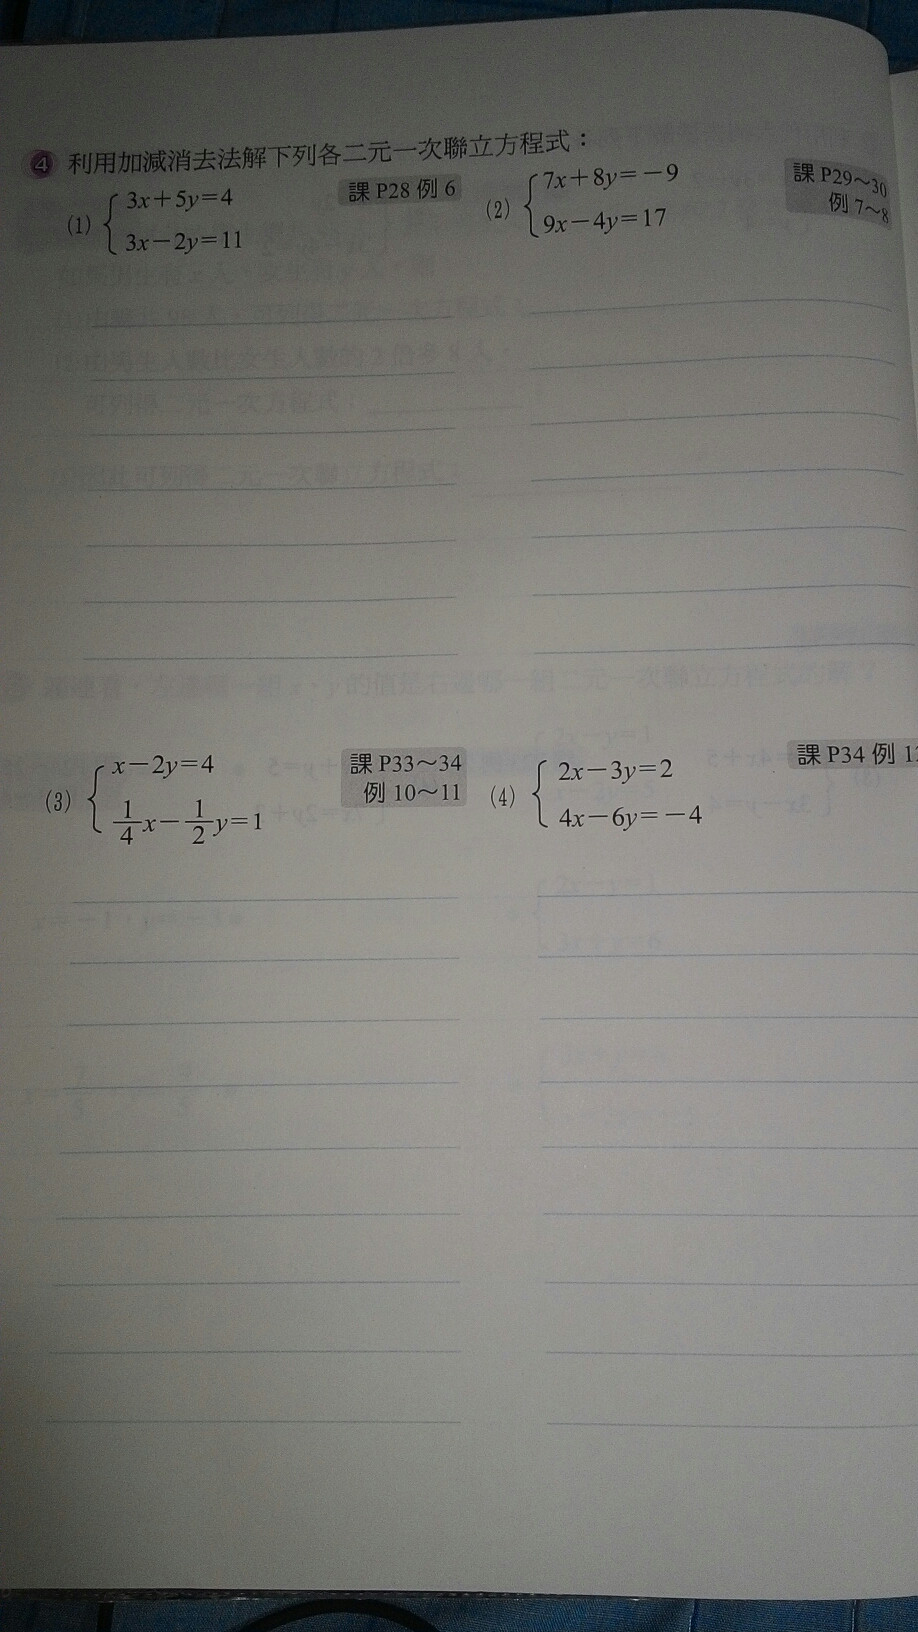 4 利用加減消去法解下列各二元一次聯立方程式：
(1) 3x+5y=4
3x-2y=11
課 P28 例 6
(2) 7x+8y=-9
9x-4y=17
課 P29～30
例 7～8
(3) x-2y=4
1/4x-1/2y=1
課 P33～34
例 10～11
(4) 2x-3y=2
4x-6y=-4
課 P34 例